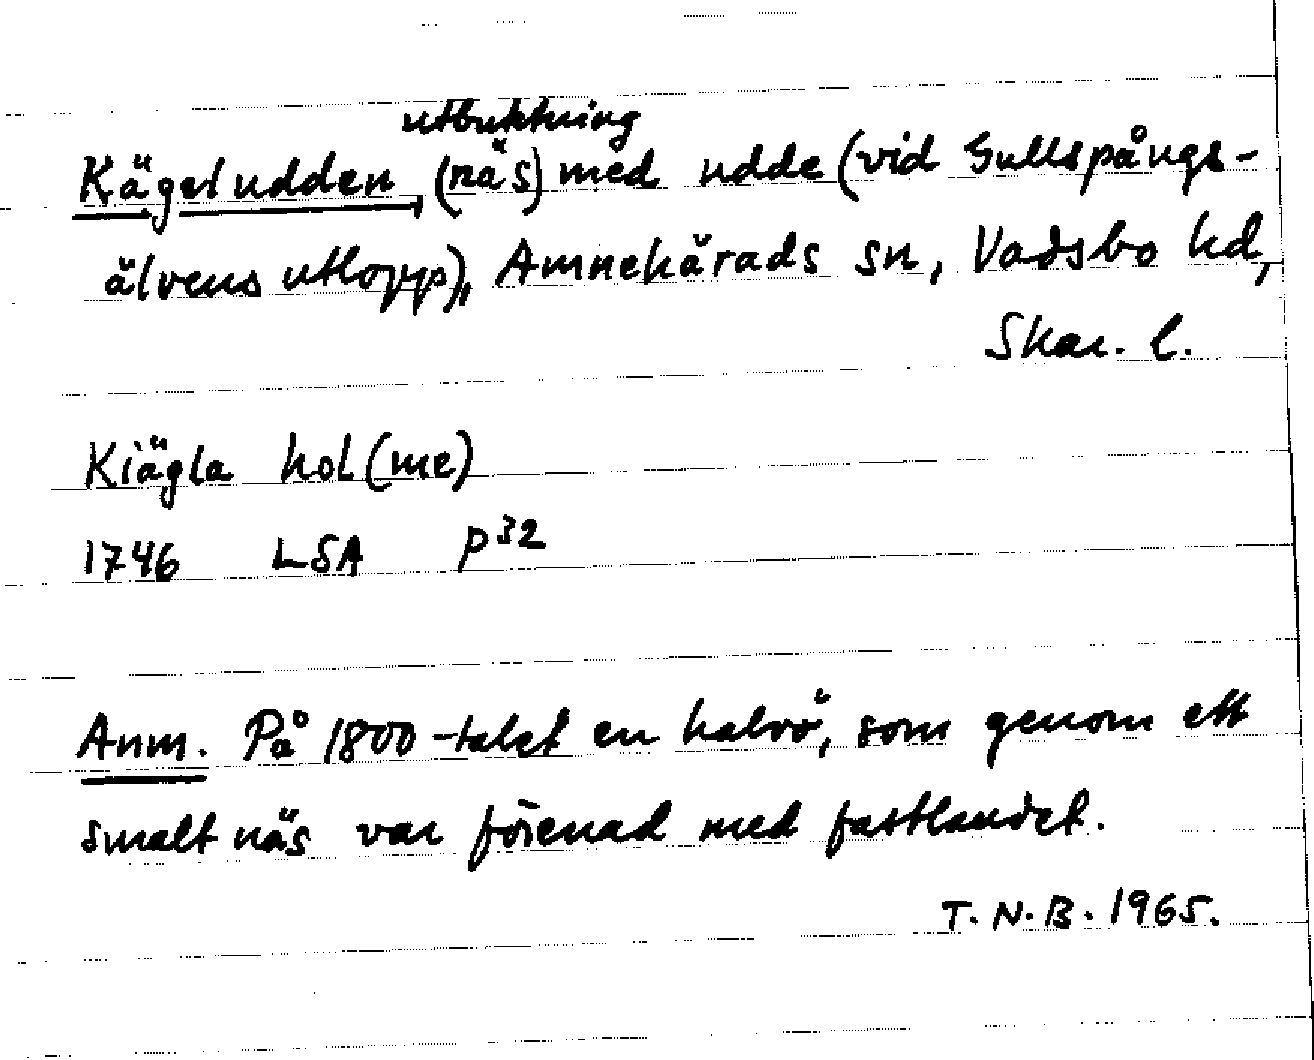 utbuktning
Kägeludden, (näs) med udde (vid Gullspångs-
älvens utlopp), Amnehärads sn, Vadsbo hd,
Skar. l.
Kiägla hol(me)
1746 LSA P32
Anm. På 1800-talet en halvö, som genom ett
smalt näs var förenad med fastlandet.
T.N.B. 1965.